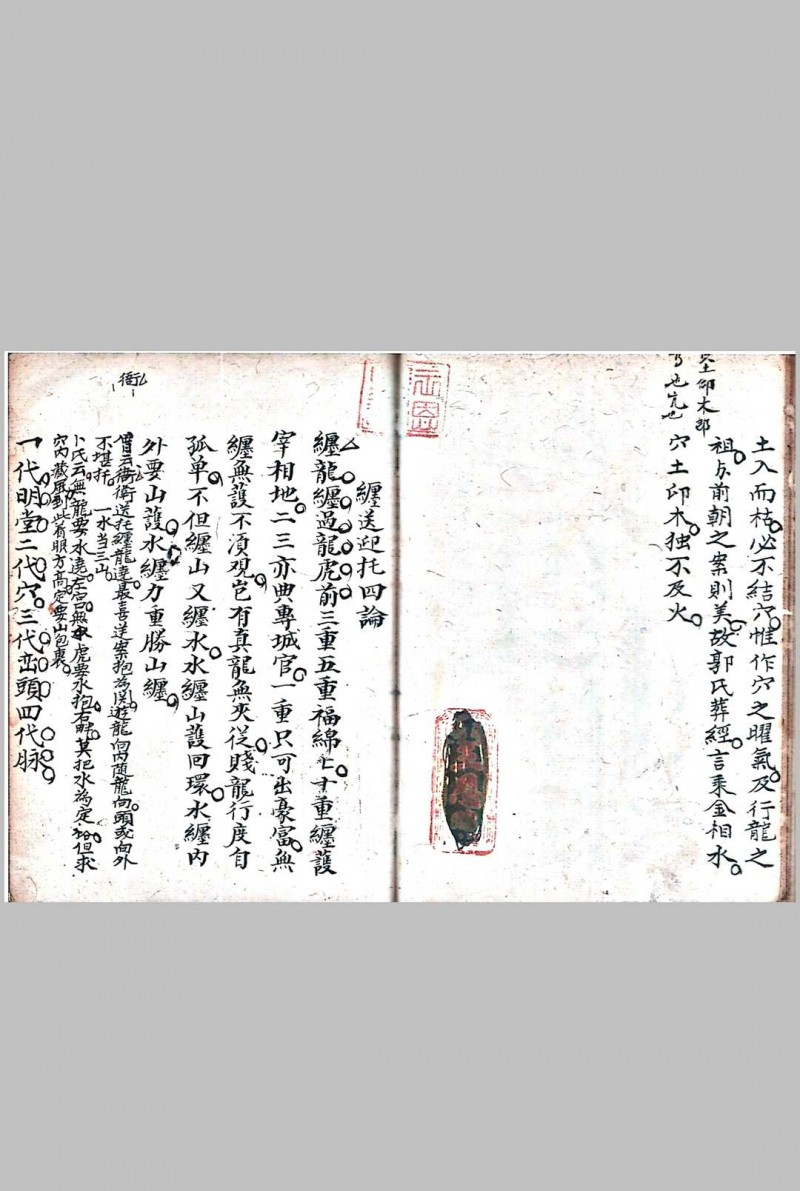 穴土卽木郎
也穴也
土入而枯必不結穴惟作穴之曜氣及行龍之
祖与前朝之案則美故郭氏葬經言乘金相水
穴土印木独不及火
纏送迎托四論
纏龍纏過龍虎前三重五重福綿七十重纏護
宰相地二三亦典專城官一重只可出豪富無
纏無護不湏观豈有真龍無夾從賤龍行度自
孤单不但纏山又纏水水纏山護回環水纏内
外要山護水纏力重勝山纏
衙
曾云衛送托纏龍遶最喜送案抱為関遊龍向内随龍向頭或向外
不堪托 一水当三山
卜氏云無龍要水遶左宫無虎要水抱右畔莫把水為定格但求
穴内藏風到此着眼方高定要山包裹
一代明堂二代穴三代峦頭四代脉